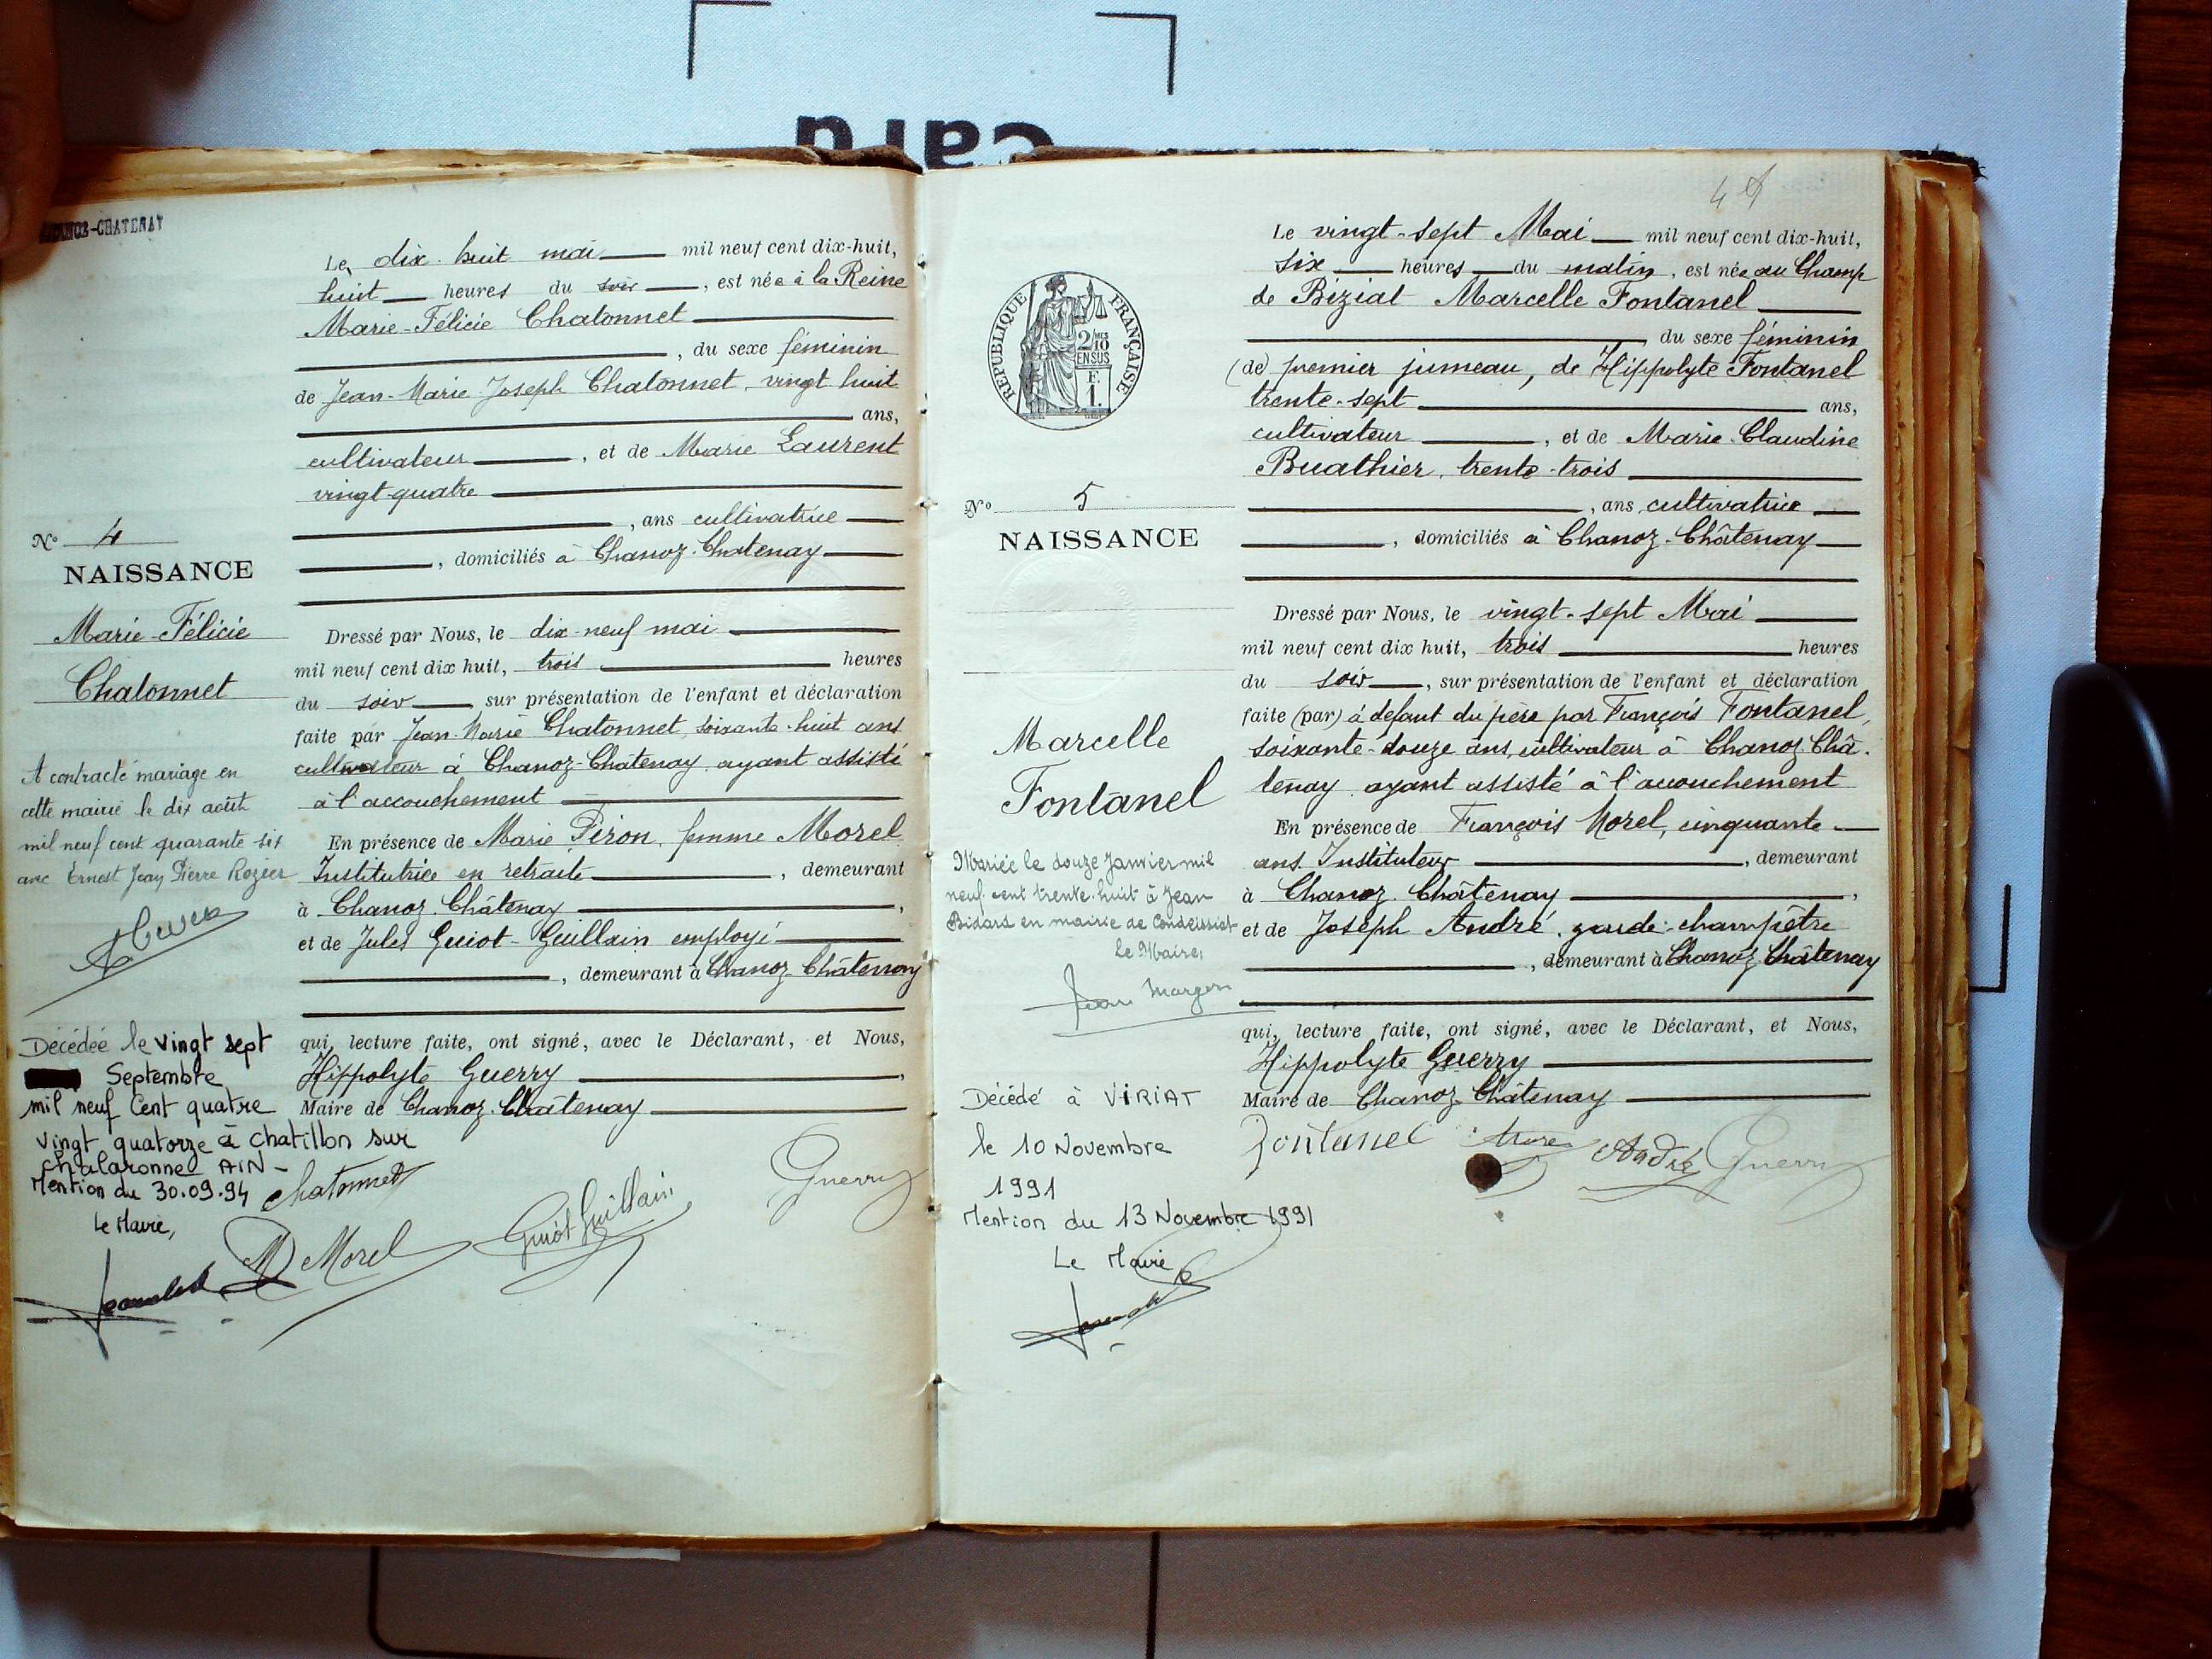 Card
CHANOZ-CHATENAY
Le, dix-huit mai mil neuf cent dix-huit,
huit heures du soir, est née à la Reine
Marie-Félicie Chatonnet
, du sexe féminin
de Jean-Marie Joseph Chatonnet, vingt huit
ans,
cultivateur, et de Marie Laurent
vingt-quatre
, ans cultivatrice
, domiciliés à Chanoz-Chatenay
Dressé par Nous, le dix-neuf mai
mil neuf cent dix huit, trois heures
du soir, sur présentation de l'enfant et déclaration
faite par Jean-Marie Chatonnet, soixante-huit ans
cultivateur à Chanoz-Chatenay, ayant assisté
à l'accouchement
En présence de Marie Piron, femme Morel
Institutrice en retraite, demeurant
à Chanoz-Châtenay,
et de Jules Guiot-Guillain employé
, demeurant à Chanoz-Châtenay
qui, lecture faite, ont signé, avec le Déclarant, et Nous,
Hippolyte Guerry,
Maire de Chanoz-Châtenay
Chatonnet
M Morel
Guiot Guillain
Guerry
N° 4
NAISSANCE
Marie-Félicie
Chatonnet
A contracté mariage en
cette mairie le dix août
mil neuf cent quarante-six
avec Ernest Jean Pierre Rozier
Décédée le vingt sept
Septembre
mil neuf Cent quatre
vingt quatorze à Chatillon sur
Chalaronne AIN-
Mention du 30.09.94
Le Maire,
RÉPUBLIQUE FRANÇAISE
2/10
EN SUS
F.
1.
Le vingt-sept Mai mil neuf cent dix-huit,
six heures du matin, est née au Champ
de Biziat Marcelle Fontanel
du sexe féminin
(de) premier jumeau, de Hippolyte Fontanel
trente-sept ans,
cultivateur, et de Marie-Claudine
Buathier, trente-trois
, ans cultivatrice
, domiciliés à Chanoz-Châtenay
Dressé par Nous, le vingt-sept Mai
mil neuf cent dix huit, trois heures
du soir, sur présentation de l'enfant et déclaration
faite (par) à défaut du père par François Fontanel,
soixante-douze ans, cultivateur à Chanoz-Châ-
tenay ayant assisté à l'accouchement
En présence de François Morel, cinquante
ans Instituteur, demeurant
à Chanoz-Châtenay,
et de Joseph André, garde-champêtre
, demeurant à Chanoz-Châtenay
qui, lecture faite, ont signé, avec le Déclarant, et Nous,
Hippolyte Guerry
Maire de Chanoz-Châtenay
Fontanel Morel André Guerry
N° 5
NAISSANCE
Marcelle
Fontanel
Mariée le douze Janvier mil
neuf cent trente-huit à Jean
Bidard en mairie de Condeissiat
Le Maire,
Décédé à VIRIAT
le 10 Novembre
1991
Mention du 13 Novembre 1991
Le Maire